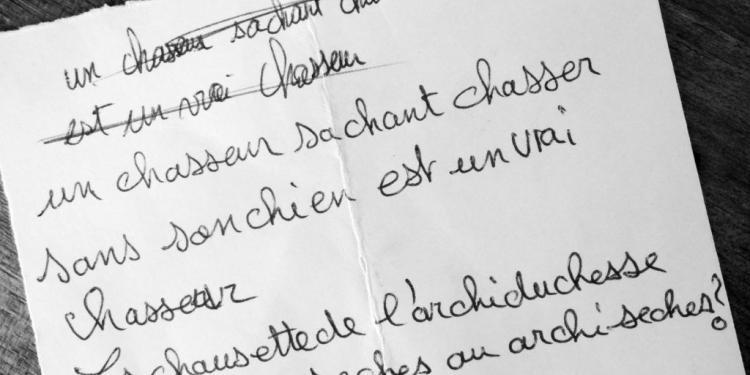 un chasseur sachant
est un vrai chasseur
un chasseur sachant chasser
sans son chien est un vrai
chasseur
chausette de l'archiduchesse
ou archi-seches?